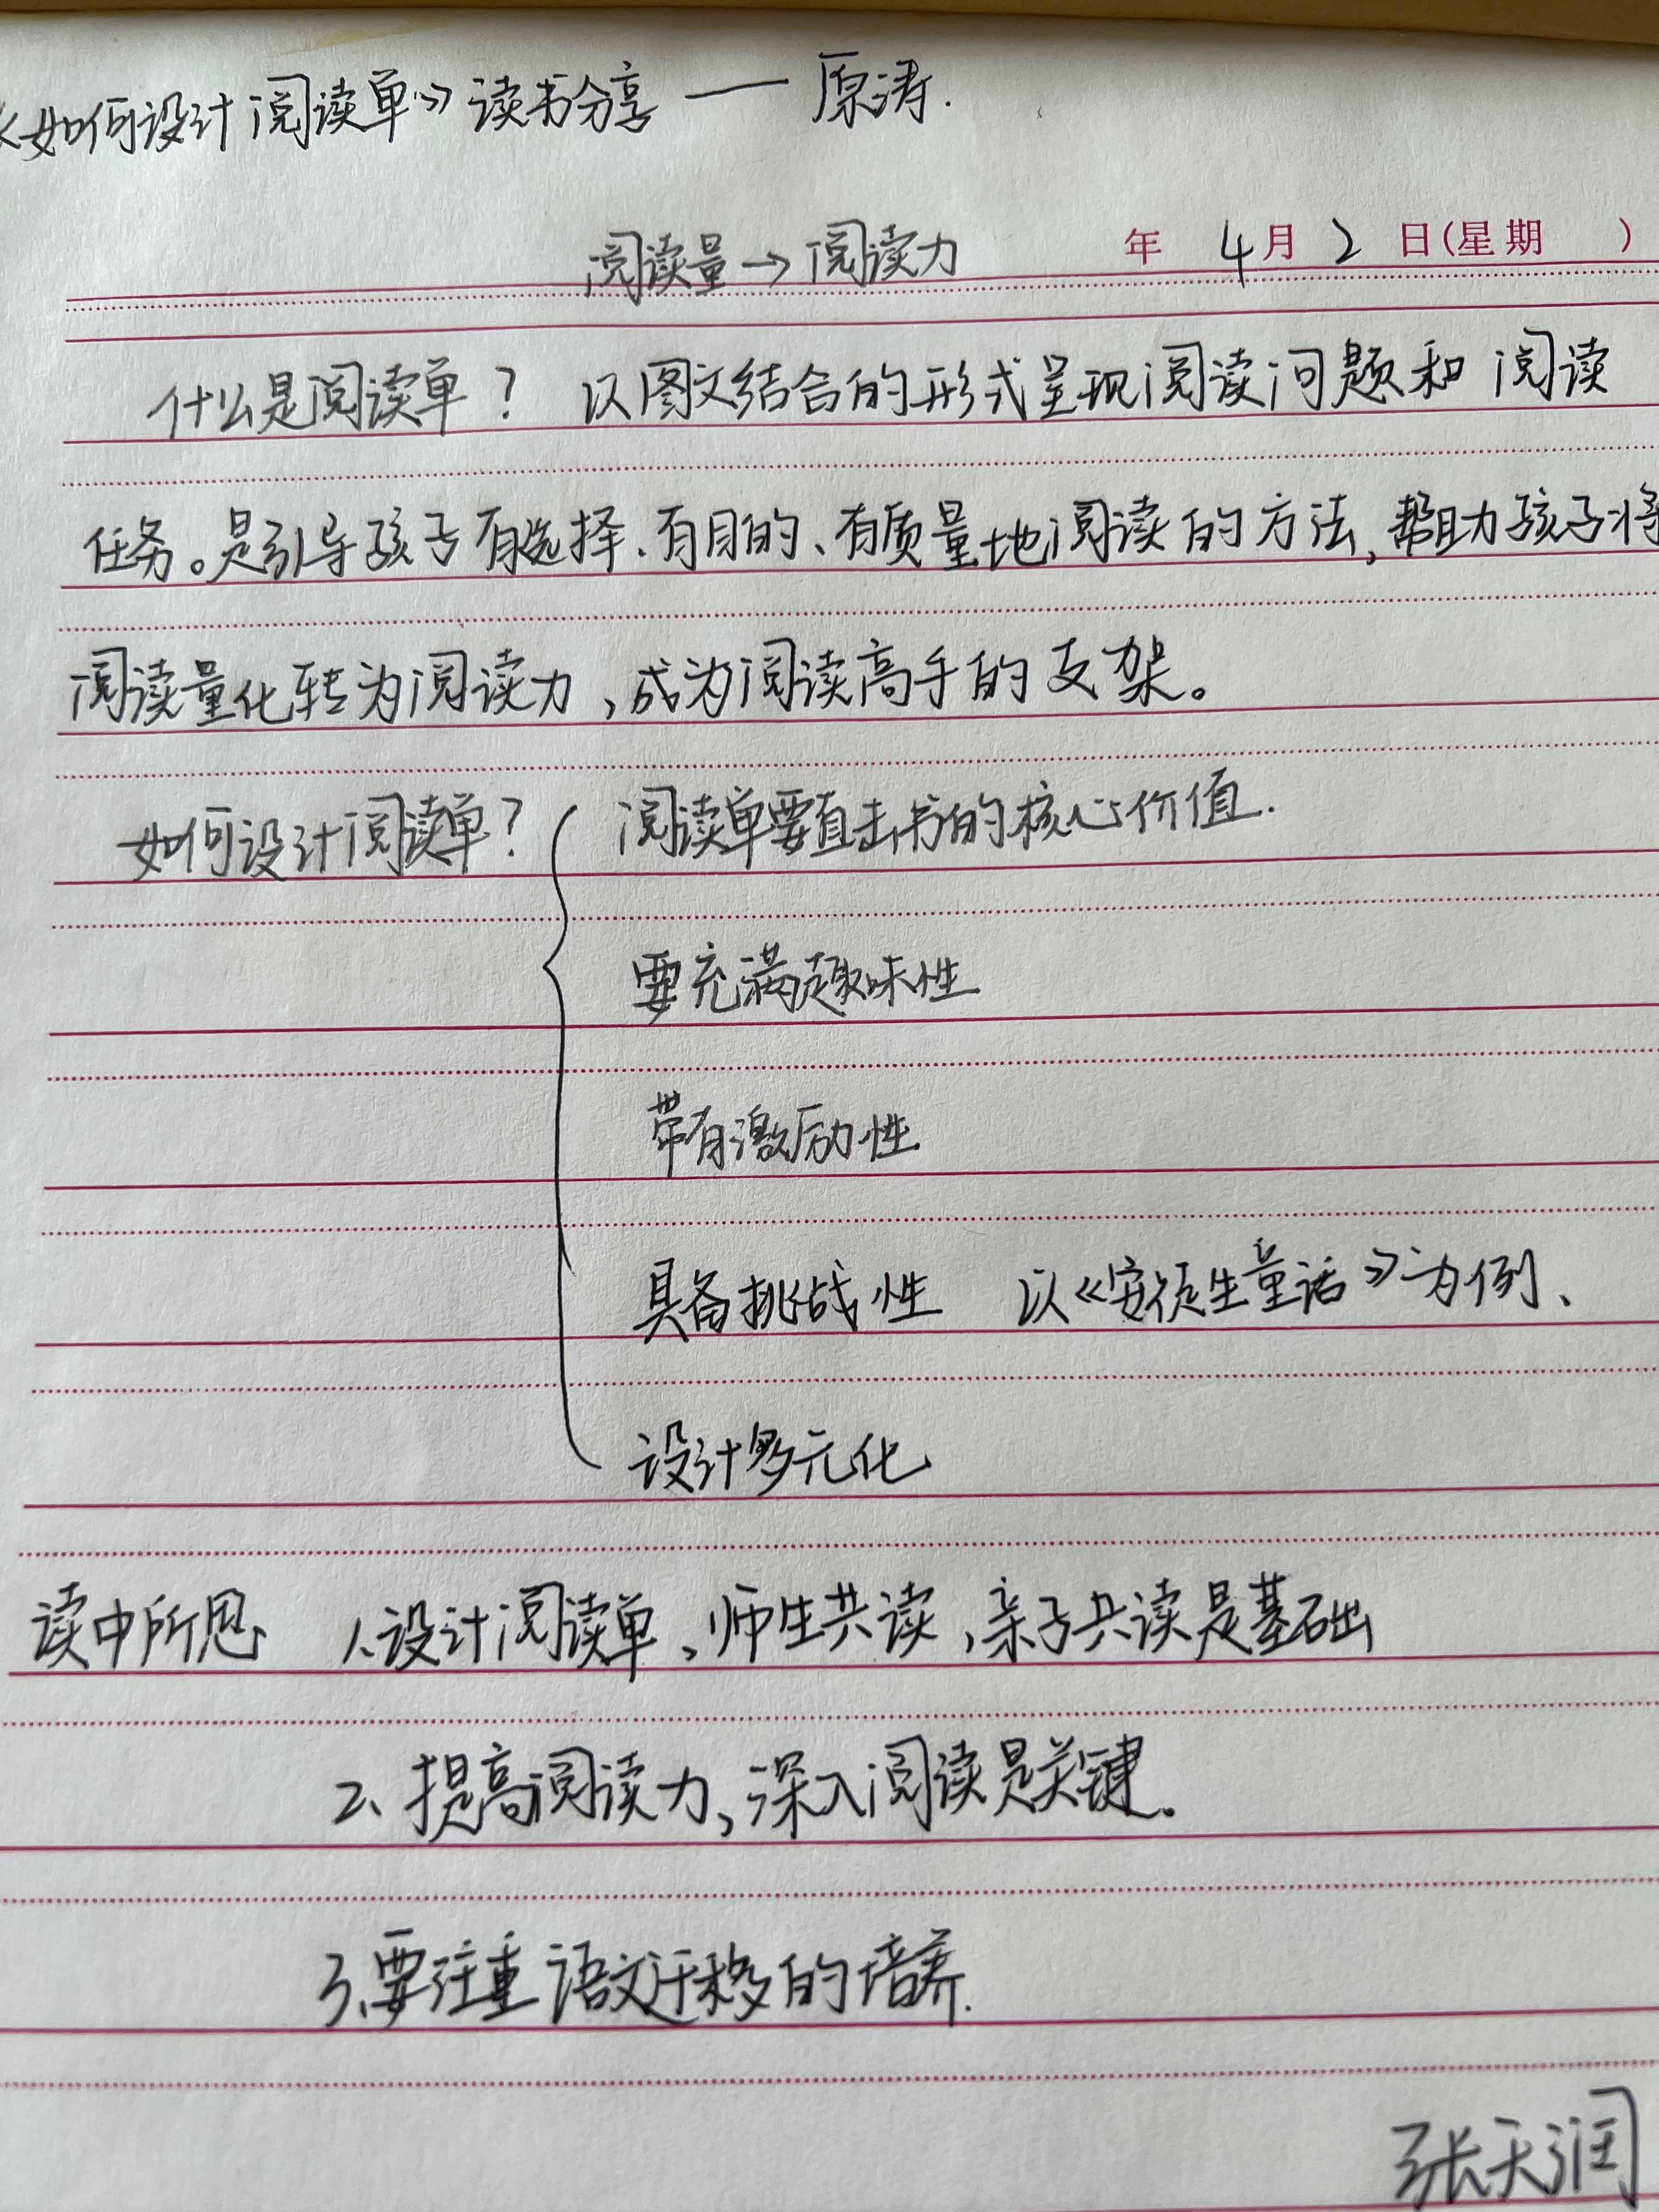 《如何设计阅读单》读书分享 — 原涛.
阅读量→阅读力 年 4月 2 日(星期 )
什么是阅读单? 以图文结合的形式呈现阅读问题和阅读
任务。是引导孩子有选择、有目的、有质量地阅读的方法,帮助孩子将
阅读量化转为阅读力,成为阅读高手的支架。
如何设计阅读单? { 阅读单要直击书的核心价值.
要充满趣味性
带有激励性
具备挑战性 以《安徒生童话》为例、
设计多元化
读中所思 1.设计阅读单、师生共读,亲子共读是基础
2、提高阅读力,深入阅读是关键。
3、要注重语文迁移的培养.
张天润